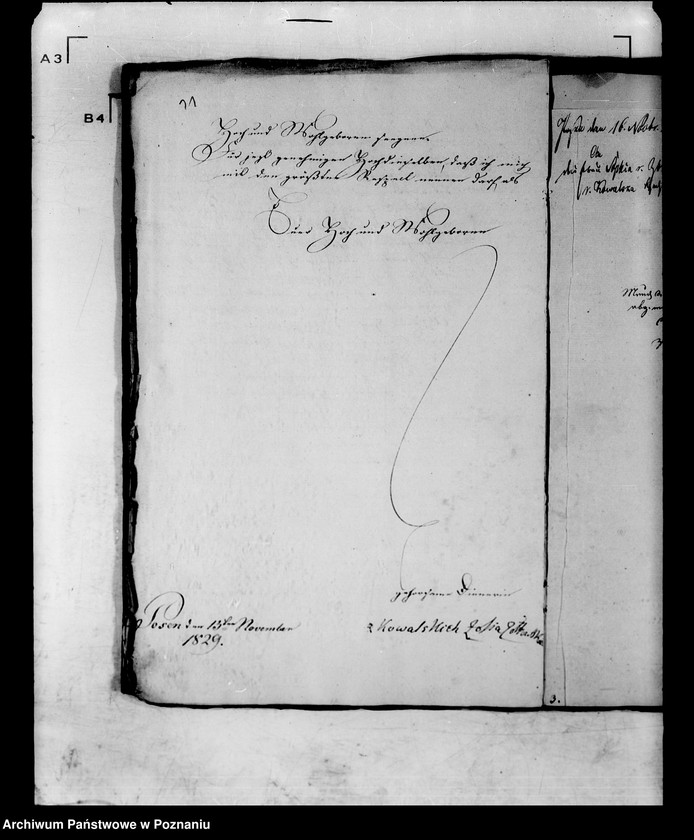 A3
B4
11
Hoch und Wohlgeboren
Für jetzt genehmigen Hochdieselben, daß ich mich
mit dem größten Respect nennen darf, als
Euer Hoch und Wohlgeboren
gehorsame Dienerin
Posen den 15ten November
1829.
z Kowalskich Zofia
Posen den 16. Novbr.
An
die Frau Sophia v.
v. Kowalska
3.
Archiwum Państwowe w Poznaniu